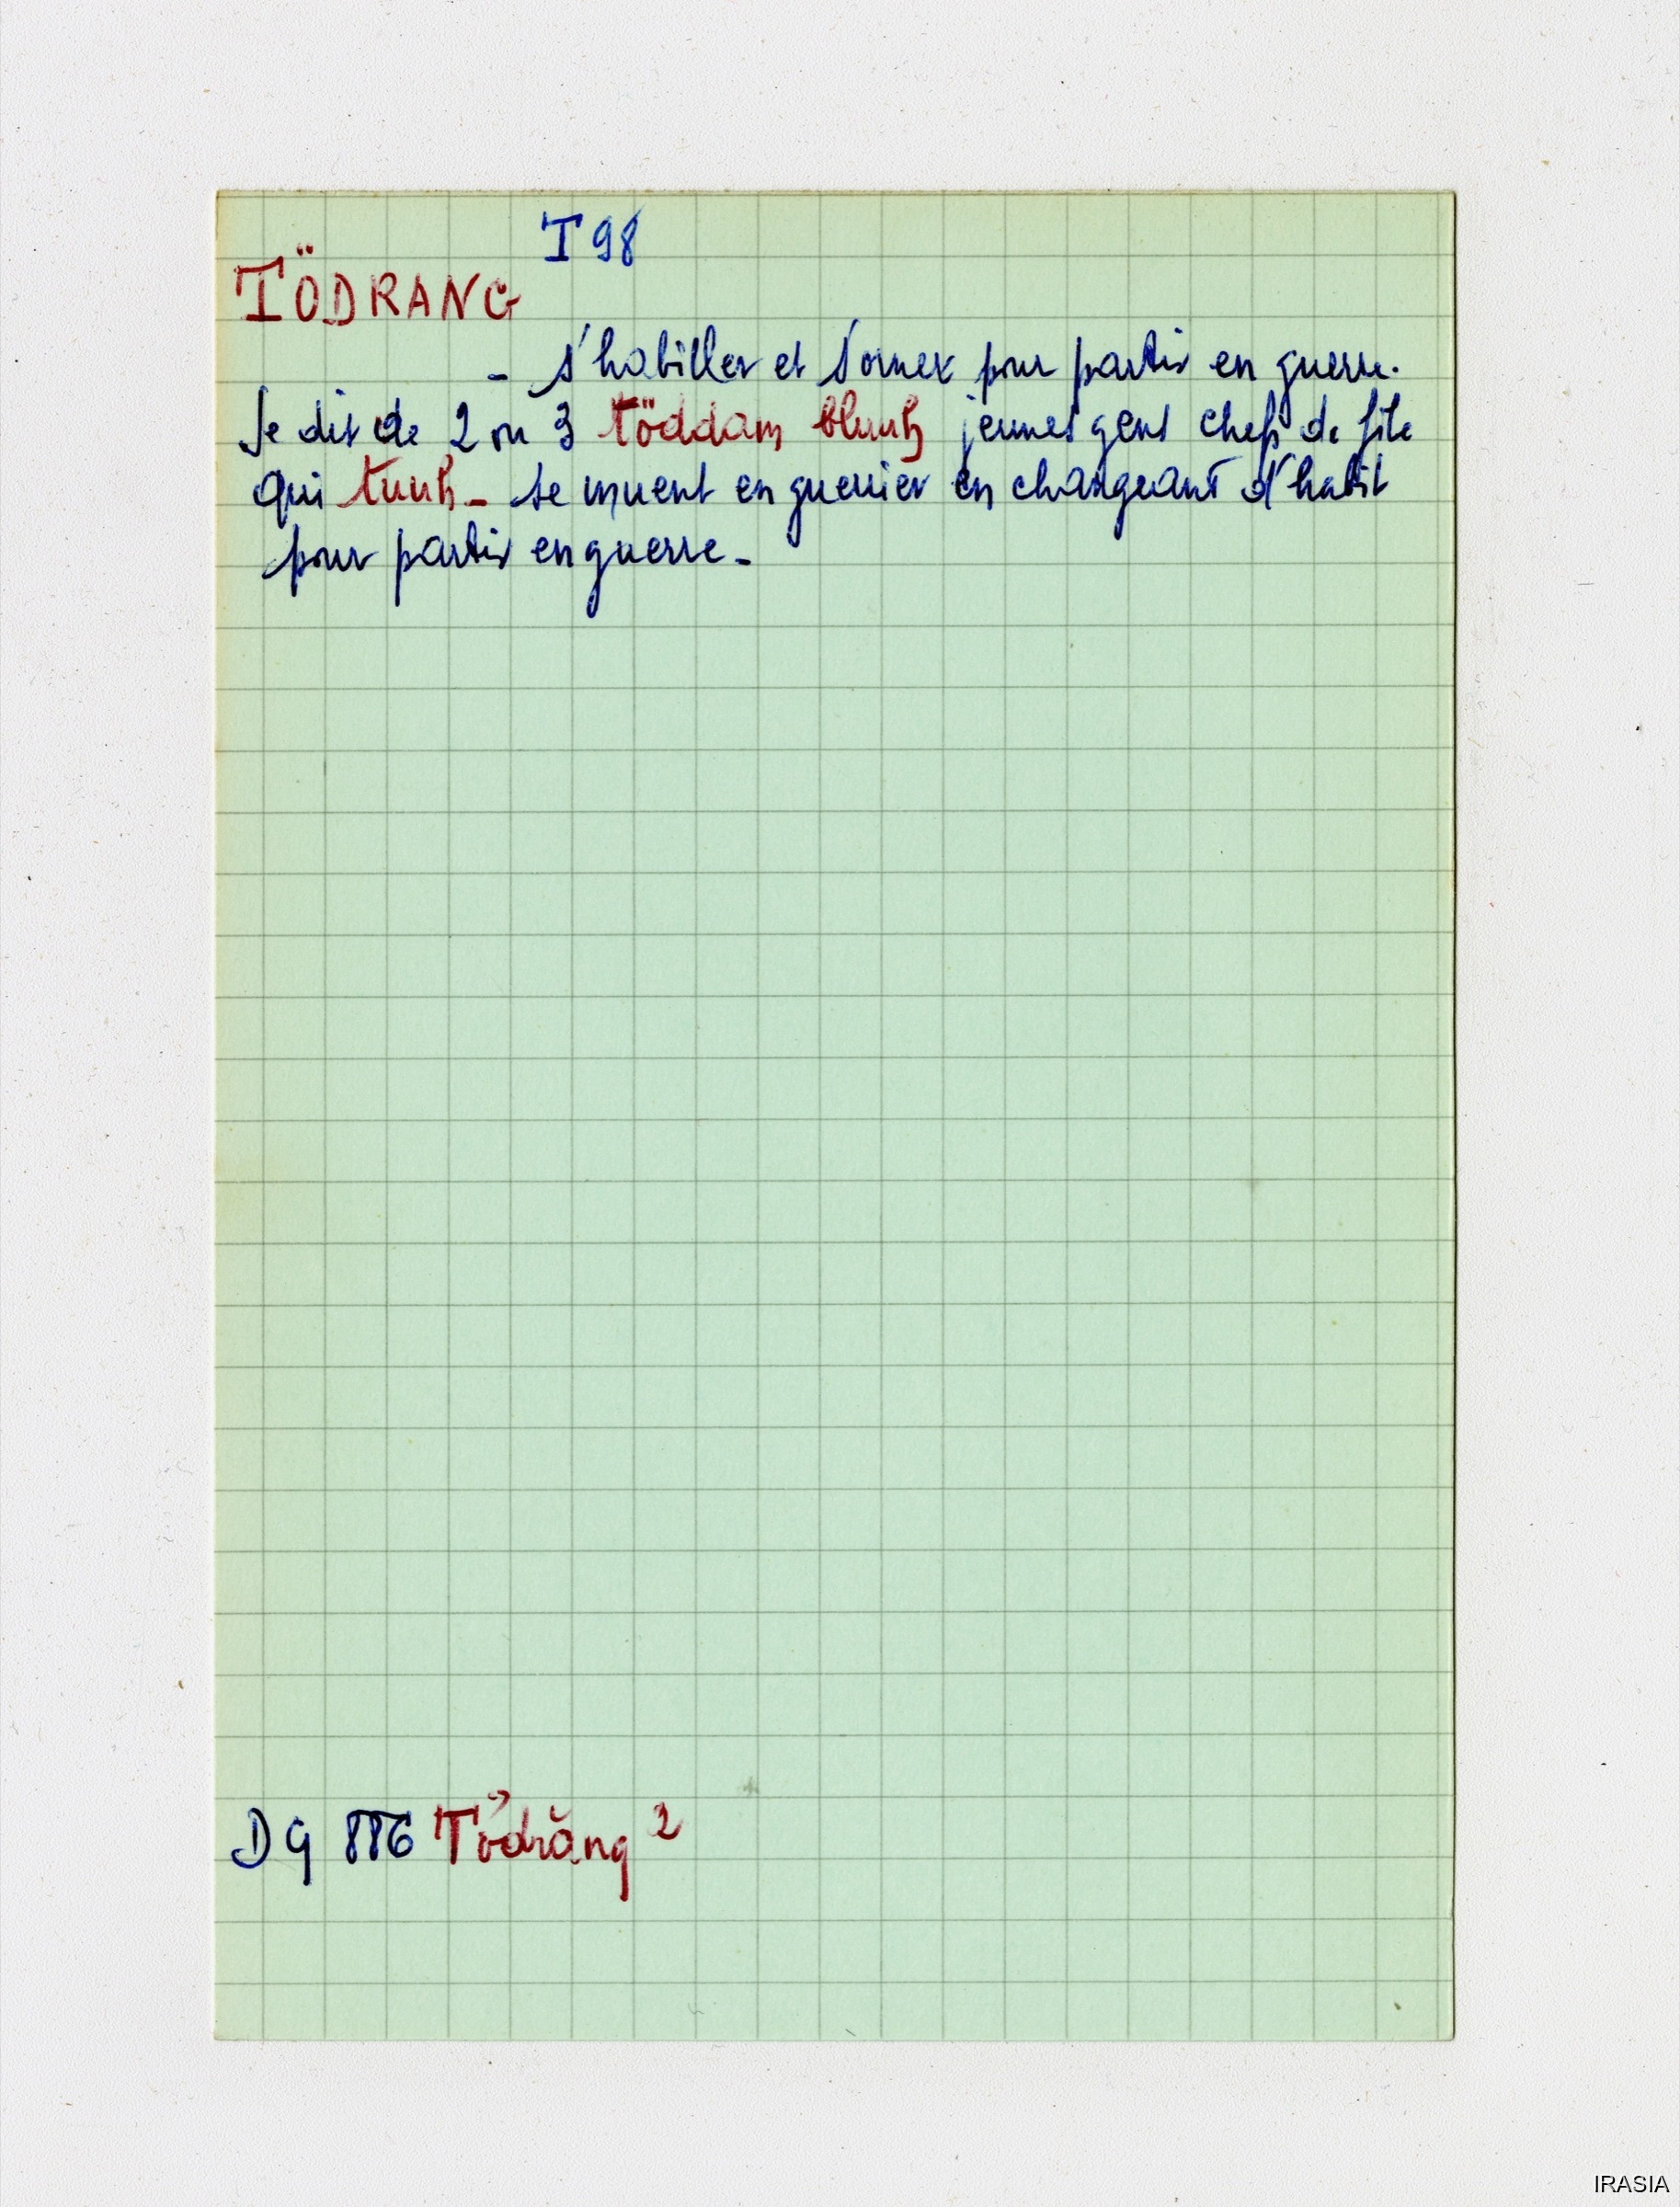 T 98
TÖDRANG
- s'habiller et s'orner pour partir en guerre.
Se dit de 2 ou 3 töddam bluuh jeunes gens chefs de file
qui tuuh - se muent en guerrier en changeant d'habit
pour partir en guerre -
DG 886 Tödrăng 2
IRASIA